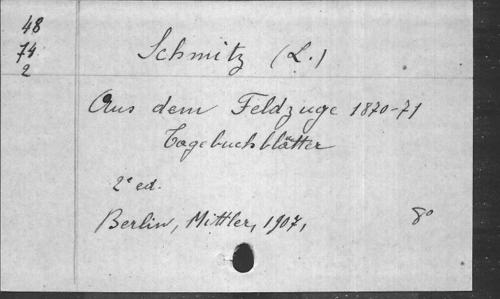 48
74
2
Schmitz (L.)
Aus dem Feldzuge 1870-71
Tagebuchblätter
2e ed.
Berlin, Mittler, 1907, 8o